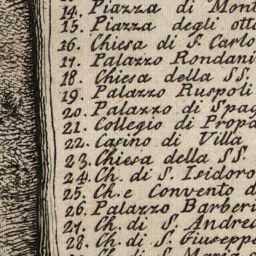 14. Piazza di Mont
15. Piazza degli otto
16. Chiesa di S. Carlo
17. Palazzo Rondani
18. Chiesa della SS.
19. Palazzo Ruspoli
20. Palazzo di Spag
21. Collegio di Propa
22. Casino di Villa
23. Chiesa della SS.
24. Ch. di S. Isidoro
25. Ch. e Convento d
26. Palazzo Barberi
27. Ch. di S. Andrea
28. Ch. di S. Giuseppe
Ch. di S. Maria